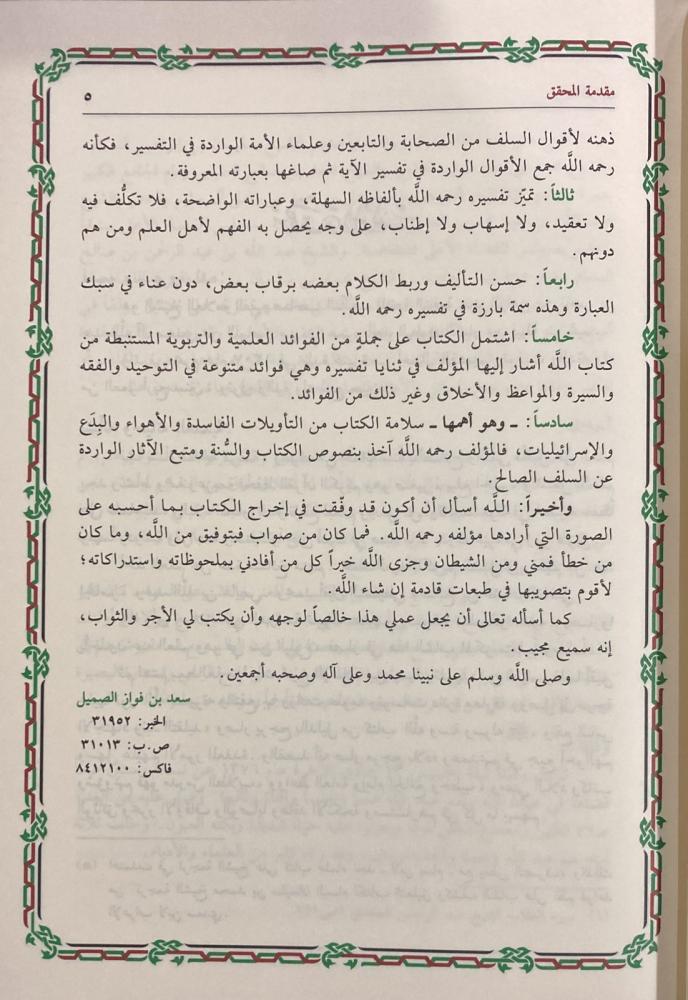 مقدمة المحقق
٥
ذهنه لأقوال السلف من الصحابة والتابعين وعلماء الأمة الواردة في التفسير، فكأنه
رحمه اللَّه جمع الأقوال الواردة في تفسير الآية ثم صاغها بعبارته المعروفة.
ثالثاً: تميّز تفسيره رحمه اللَّه بألفاظه السهلة، وعباراته الواضحة، فلا تكلُّف فيه
ولا تعقيد، ولا إسهاب ولا إطناب، على وجه يحصل به الفهم لأهل العلم ومن هم
دونهم.
رابعاً: حسن التأليف وربط الكلام بعضه برقاب بعض، دون عناء في سبك
العبارة وهذه سمة بارزة في تفسيره رحمه اللَّه.
خامساً: اشتمل الكتاب على جملةٍ من الفوائد العلمية والتربوية المستنبطة من
كتاب اللَّه أشار إليها المؤلف في ثنايا تفسيره وهي فوائد متنوعة في التوحيد والفقه
والسيرة والمواعظ والأخلاق وغير ذلك من الفوائد.
سادساً: ـ وهو أهمها ـ سلامة الكتاب من التأويلات الفاسدة والأهواء والبِدَع
والإسرائيليات، فالمؤلف رحمه اللَّه آخذ بنصوص الكتاب والسُّنة ومتبع الآثار الواردة
عن السلف الصالح.
وأخيراً: اللَّه أسأل أن أكون قد وفّقت في إخراج الكتاب بما أحسبه على
الصورة التي أرادها مؤلفه رحمه اللَّه. فما كان من صواب فبتوفيق من اللَّه، وما كان
من خطأ فمني ومن الشيطان وجزى اللَّه خيراً كل من أفادني بملحوظاته واستدراكاته؛
لأقوم بتصويبها في طبعات قادمة إن شاء اللَّه.
كما أسأله تعالى أن يجعل عملي هذا خالصاً لوجهه وأن يكتب لي الأجر والثواب،
إنه سميع مجيب.
وصلى اللَّه وسلم على نبينا محمد وعلى آله وصحبه أجمعين.
سعد بن فواز الصميل
الخبر: ٣١٩٥٢
ص.ب: ٣١٠١٣
فاكس: ٨٤١٢١٠٠